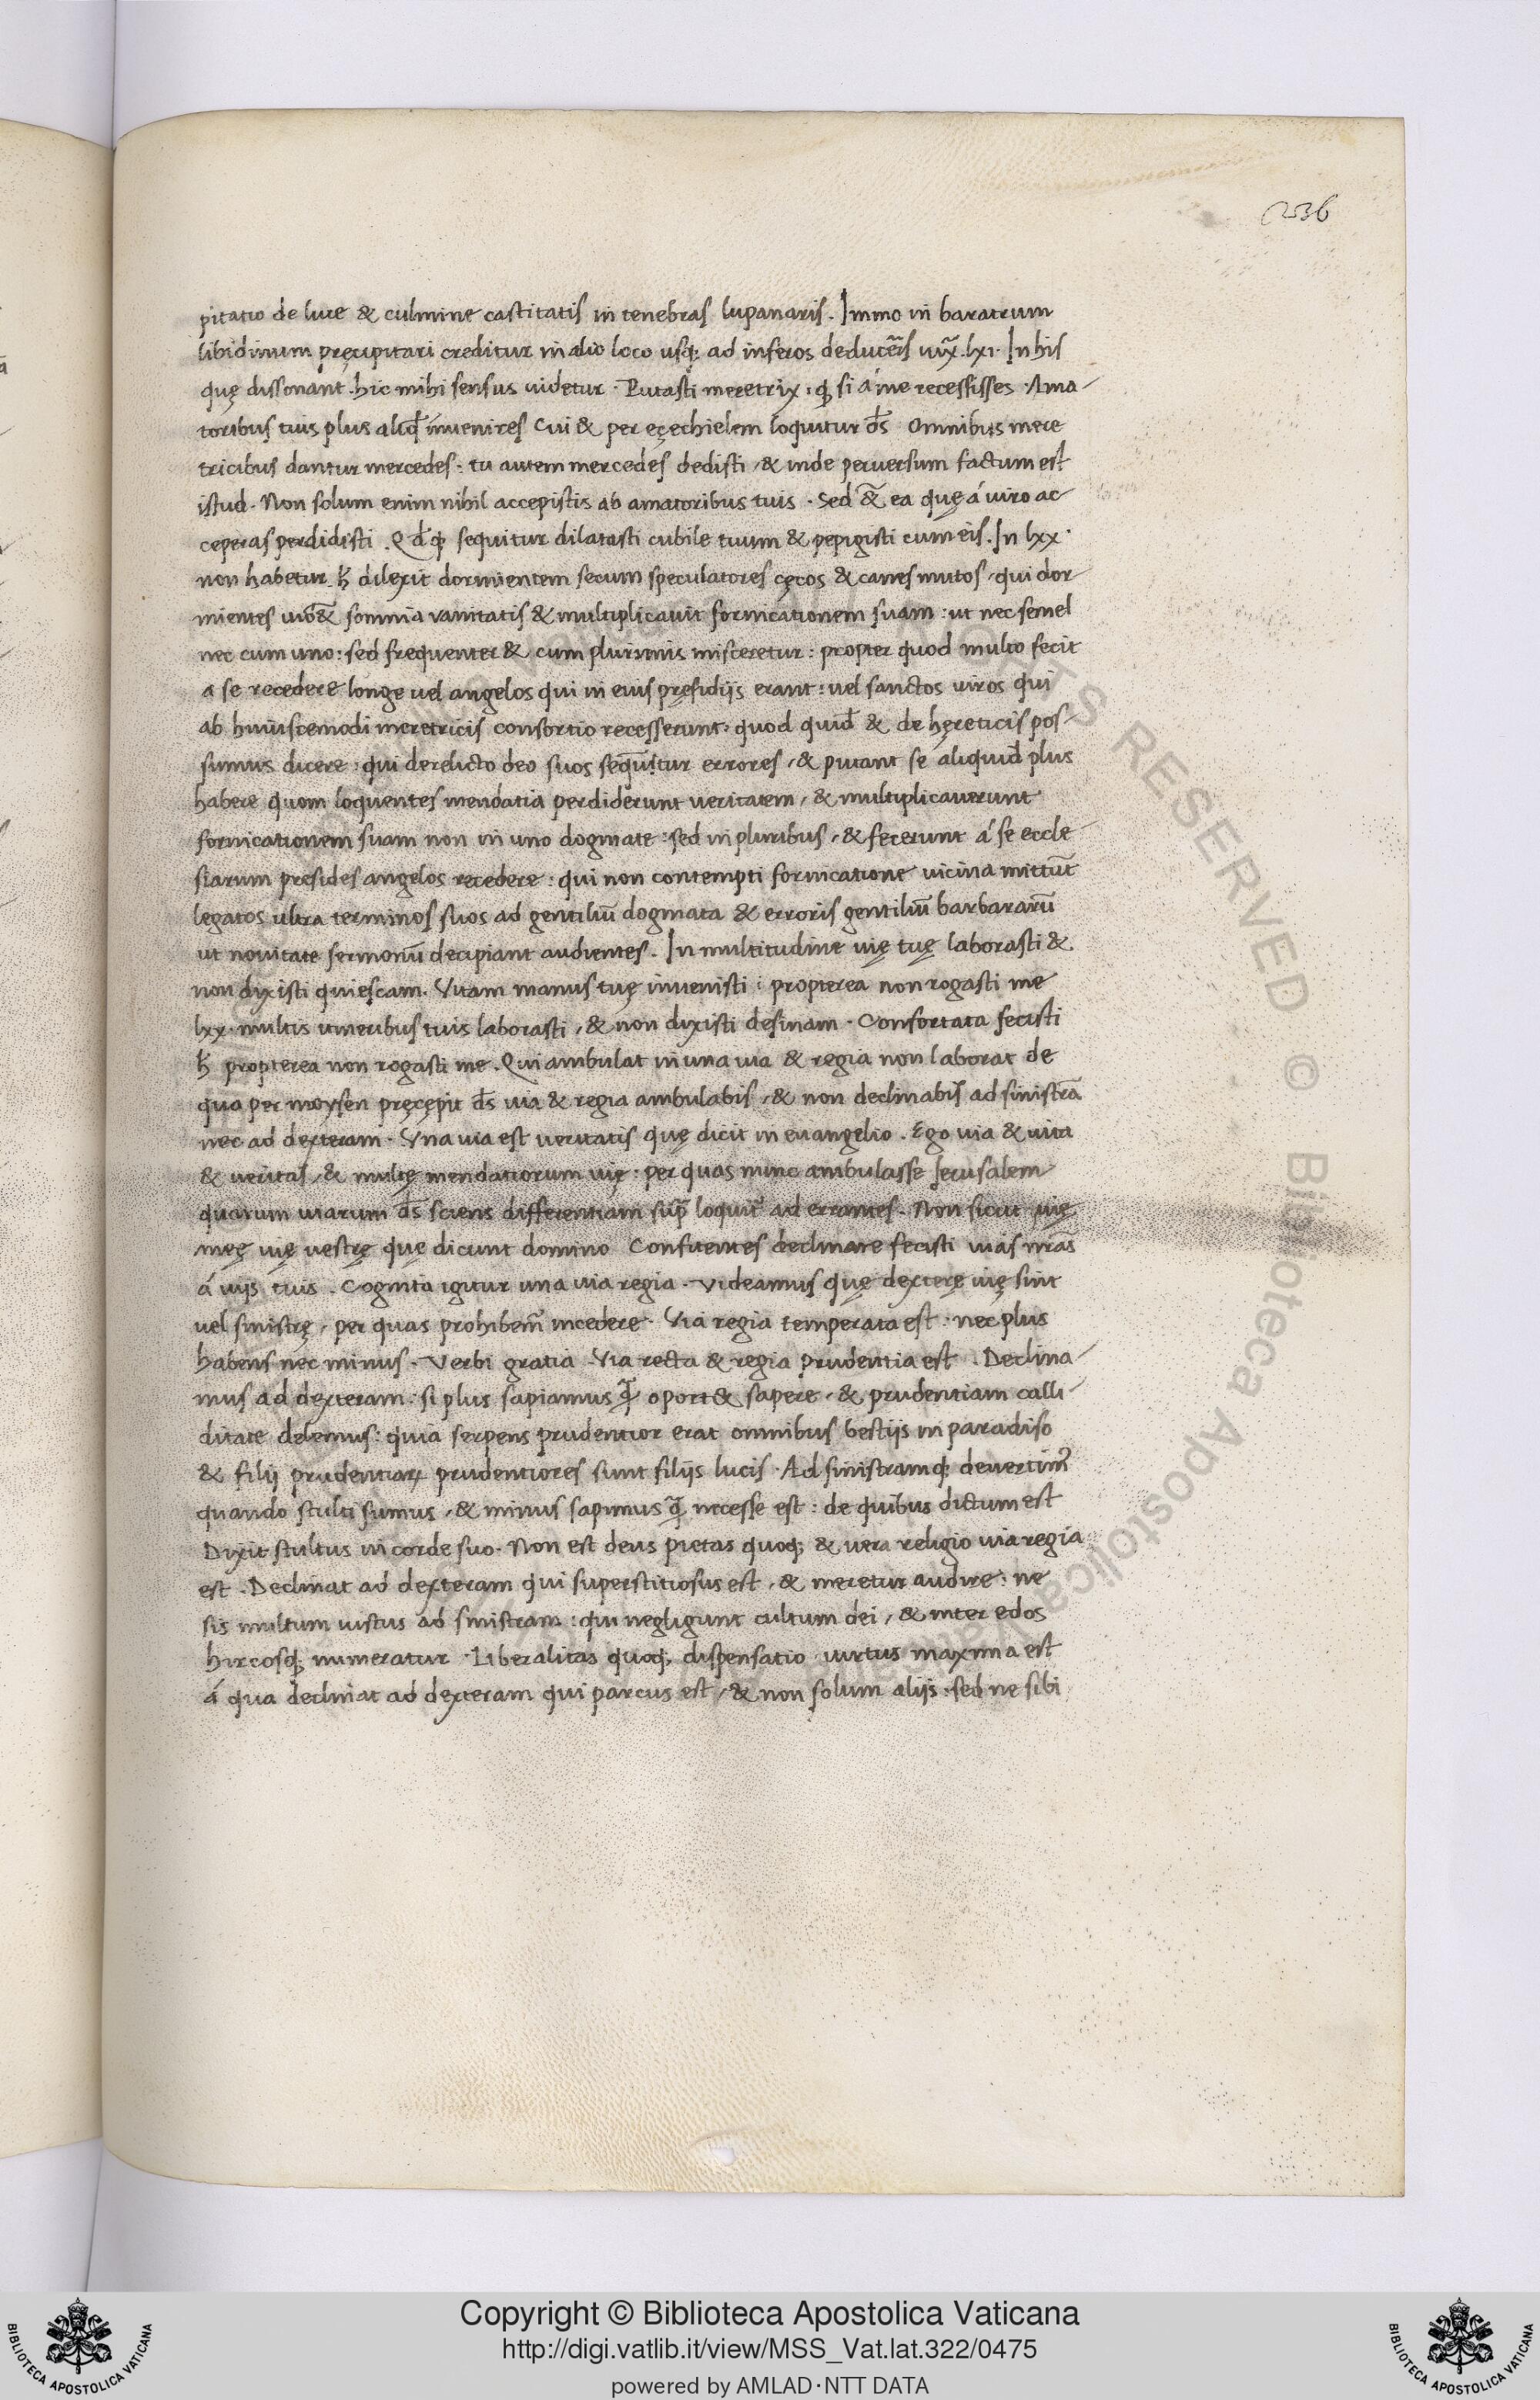 236
pitatio de luce & culmine castitatis in tenebras lupanaris. Immo in baratrum
libidinum pręcipitari creditur in alio loco usq; ad inferos deducẽs uiã. lxi. In his
quę dissonant. hic mihi sensus uidetur. Putasti meretrix: ꝙ si á me recessisses. Ama-
toribus tuis plus aliqd̄ inuenires Cui & per eçechielem loquitur d̄s Omnibus mere
tricibus dantur mercedes. tu autem mercedes dedisti, & inde perversum factum est
istud. Non solum enim nihil accepistis ab amatoribus tuis. Sed &̃ ea quę á uiro ac
ceperas perdidisti. Qd̄ꝙ sequitur dilatasti cubile tuum & pepigisti cum eis. In lxx.
non habetur. ħ dilexit dormientem secum speculatores cęcos & canes mutos, qui dor
mientes uid&̃ somnia vanitatis & multiplicauit fornicationem suam: ut nec semel
nec cum uno: sed frequenter & cum plurimis misceretur: propter quod multo fecit
a se recedere longe uel angelos qui in eius pręsidijs erant: uel sanctos uiros qui
ab huiuscemodi meretricis consortio recesserunt: quod quid̄ & de hęreticis pos-
sumus dicere: qui derelicto deo suos sequũtur errores, & putant se aliquid plus
habere quom loquentes mendatia perdiderunt ueritatem, & multiplicauerunt
fornicationem suam non in uno dogmate: sed in pluribus, & fecerunt á se eccle
siarum presides angelos recedere: qui non contempti fornicatione uicina mittũt
legatos ultra terminos suos ad gentiliũ dogmata & erroris gentiliũ barbararũ
ut nouitate sermonũ decipiant audientes. In multitudine uię tuę laborasti &
non dixisti quiescam. Vitam manus tuę inuenisti: propterea non rogasti me
lxx. multis itineribus tuis laborasti, & non dixisti desinam. Confortata fecisti
ħ propterea non rogasti me. Qui ambulat in una uia & regia non laborat de
qua per moysen pręcępit d̄s uia & regia ambulabis, & non declinabis ad sinistrã
nec ad dexteram. Vna uia est ueritatis quę dicit in euangelio. Ego uia & uita
& ueritas, & multę mendatiorum uię: per quas nunc ambulasse Jerusalem
quarum uiarum d̄s sciens differentiam sup̃ loquit̃ ad errantes. Non sicut uię
meę uię uestrę quę dicunt domino Confitentes declinare fecisti uias nrãs
á uijs tuis. Cognita igitur una uia regia. Videamus quę dexterę uię sint
uel sinistrę, per quas prohibem̃ incedere. Via regia temperata est: nec plus
habens nec minus. Verbi gratia Via recta & regia prudentia est. Declina-
mus ad dexteram: si plus sapiamus q̃ oport& sapere, & prudentiam calli-
ditate delemus: quia serpens prudentior erat omnibus bestijs in paradiso
& filij prudentiaꝝ prudentiores sunt filijs lucis. Ad sinistramq; deuertim̃
quando stulti sumus, & minus sapimus q̃ necesse est: de quibus dictum est
Dixit stultus in corde suo. Non est deus pietas quoq; & uera religio uia regia
est. Declinat ad dexteram qui superstitiosus est, & meretur audire: ne
sis multum iustus ad sinistram: qui negligunt cultum dei, & inter edos
hircosq; numeratur. Liberalitas quoq; dispensatio uirtus maxima est
á qua declinat ad dexteram qui parcus est, & non solum alijs: sed ne sibi
DIGHTS RESERVED © Biblioteca Apostolica Vaticana
Copyright © Biblioteca Apostolica Vaticana
http://digi.vatlib.it/view/MSS_Vat.lat.322/0475
powered by AMLAD·NTT DATA
BIBLIOTECA APOSTOLICA VATICANA
BIBLIOTECA APOSTOLICA VATICANA